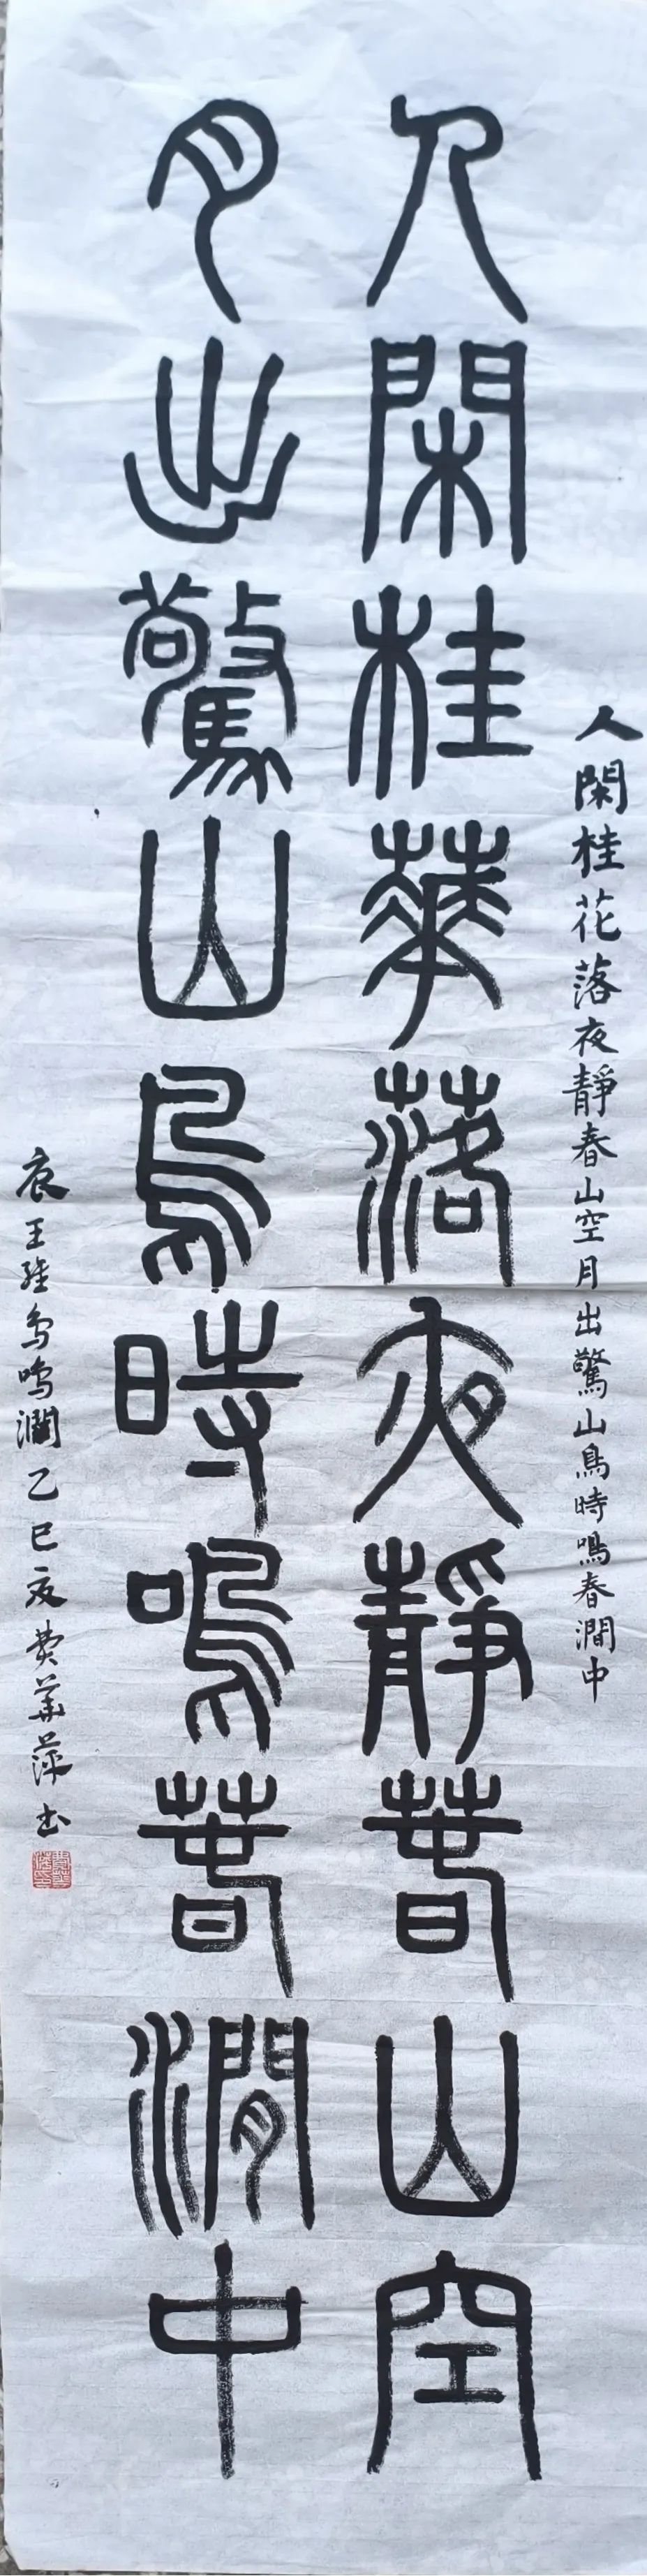 人閑桂花落夜靜春山空月出驚山鳥時鳴春澗中
人閑桂華落夜靜春山空
月出驚山鳥時鳴春澗中
唐王維鳥鳴澗乙巳夏費華萍书